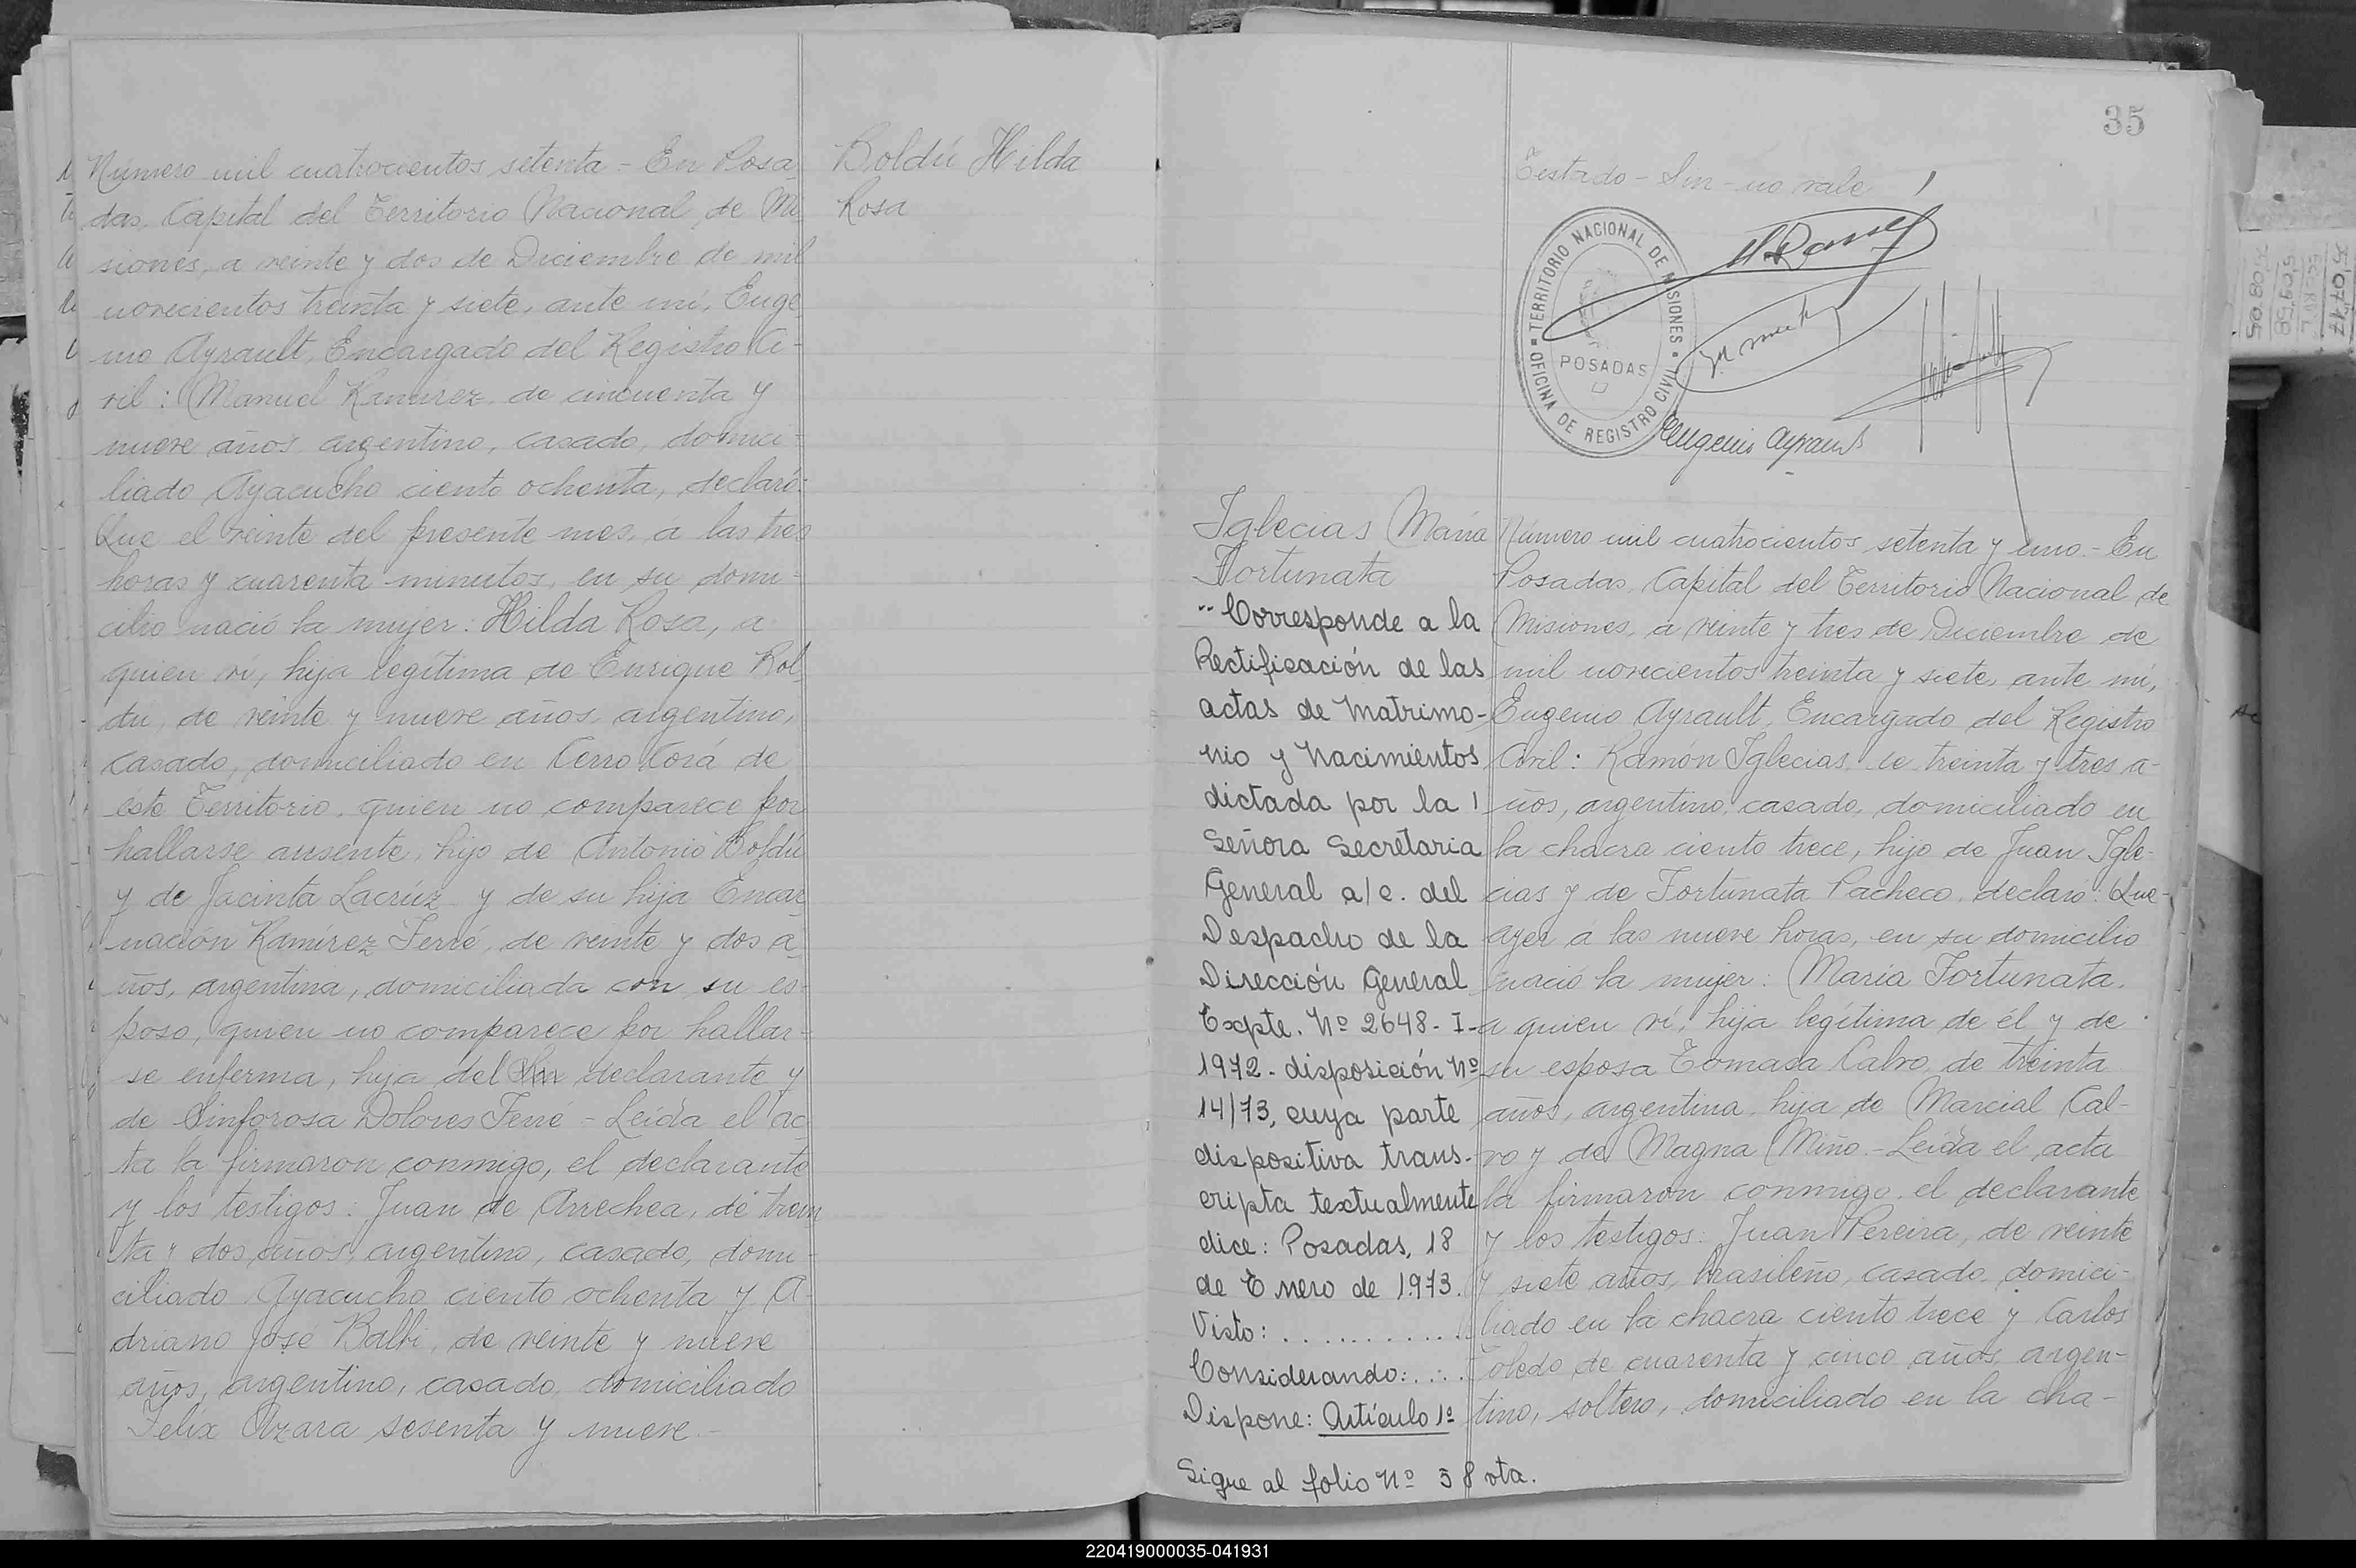 Número mil cuatrocientos setenta - En Posa
das, Capital del Territorio Nacional de Mi
siones, a veinte y dos de Diciembre de mil
novecientos treinta y siete, ante mí, Euge
nio Ayrault, Encargado del Registro Ci-
vil: Manuel Ramirez, de cincuenta y
nueve años, argentino, casado, domici-
liado Ayacucho ciento ochenta, declaró:
Que el veinte del presente mes, a las tres
horas y cuarenta minutos, en su domi-
cilio nació la mujer: Hilda Rosa, a
quien ví, hija legítima de Enrique Bol
dú, de veinte y nueve años, argentino,
casado, domiciliado en Cerro Corá de
éste Territorio, quien no comparece por
hallarse ausente, hijo de Antonio Boldú
y de Jacinta Lacrúz y de su hija Encar
nación Ramírez Ferré, de veinte y dos a
ños, argentina, domiciliada con su es-
poso, quien no comparece por hallar-
se enferma, hija del Sin declarante y
de Sinforosa Dolores Ferré - Leída el ac
ta la firmaron conmigo, el declarante
y los testigos: Juan de Arrechea, de trein
ta y dos años, argentino, casado, domi-
ciliado Ayacucho ciento ochenta y A-
driano José Balbi, de veinte y nueve
años, argentino, casado, domiciliado
Felix Azara sesenta y nueve.-
Boldú Hilda
Rosa
35
Testado - Sin - no vale
TERRITORIO NACIONAL DE MISIONES
OFICINA DE REGISTRO CIVIL
POSADAS
Eugenio Ayrault
Iglecias María
Fortunata
"Corresponde a la
Rectificación de las
actas de Matrimo-
nio y Nacimientos
dictada por la
Señora Secretaria
General a/c. del
Despacho de la
Dirección General
Expte. Nº 2648-I-
1972- disposición Nº
14/73, cuya parte
dispositiva trans-
cripta textualmente
dice: Posadas, 18
de Enero de 1973.
Visto: ...........
Considerando: ....
Dispone: Artículo 1º
Sigue al folio Nº 38 vta.
Número mil cuatrocientos setenta y uno.- En
Posadas, Capital del Territorio Nacional de
Misiones, a veinte y tres de Diciembre de
mil novecientos treinta y siete, ante mí,
Eugenio Ayrault, Encargado del Registro
Civil: Ramón Iglecias, de treinta y tres a-
ños, argentino, casado, domiciliado en
la chacra ciento trece, hijo de Juan Igle-
cias y de Fortunata Pacheco, declaró: Que
ayer a las nueve horas, en su domicilio
nació la mujer: María Fortunata,
a quien ví, hija legítima de él y de
su esposa Tomasa Calvo, de treinta
años, argentina, hija de Marcial Cal-
vo y de Magna Miño.- Leída el acta
la firmaron conmigo, el declarante
y los testigos: Juan Pereira, de veinte
y siete años, brasileño, casado, domici-
liado en la chacra ciento trece y Carlos
Toledo de cuarenta y cinco años, argen-
tino, soltero, domiciliado en la cha-
220419000035-041931